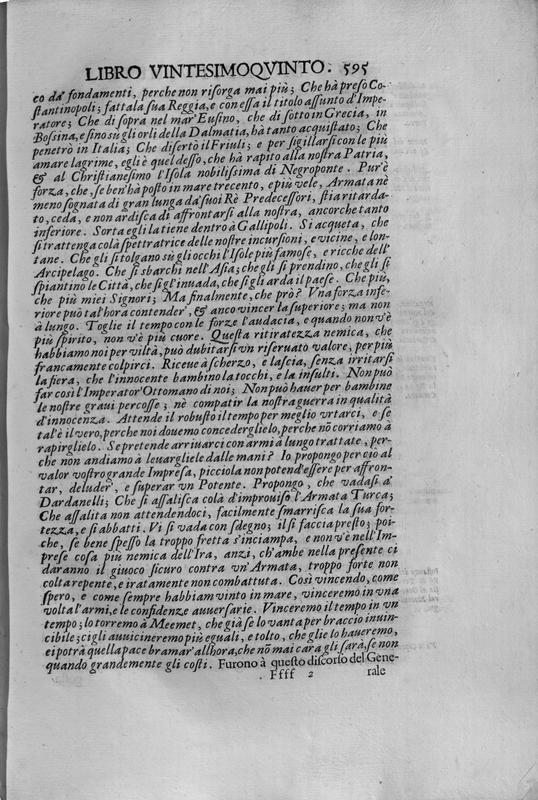 LIBRO VINTESIMOQVINTO. 595
co da' fondamenti, perche non risorga mai più; Che hà preso Co-
stantinopoli; fattala sua Reggia, e con essa il titolo assunto d'Impe-
ratore; Che di sopra nel mar' Eusino, che di sotto in Grecia, in
Bossina, e sino su gli orli della Dalmatia, hà tanto acquistato; Che
penetrò in Italia; Che disertò il Friuli; e per sigillarsi con le più
amare lagrime, egli è quel desso, che hà rapito alla nostra Patria,
& al Christianesimo l'Isola nobilissima di Negroponte. Pur'è
forza, che, se ben'hà posto in mare trecento, e più vele, Armata nè
meno sognata di gran lunga da' suoi Rè Predecessori, stia ritarda-
to, ceda, e non ardisca di affrontarsi alla nostra, ancorche tanto
inferiore. Sorta egli la tiene dentro à Gallipoli. Si acqueta, che
si trattenga colà spettratrice delle nostre incursioni, e vicine, e lon-
tane. Che gli si tolgano su gli occhi l'Isole più famose, e ricche dell'
Arcipelago. Che si sbarchi nell'Asia; che gli si prendino, che gli si
spiantino le Città, che si gl'inuada, che si gli arda il paese. Che più,
che più miei Signori; Ma finalmente, che prò? Vna forza infe-
riore può tal'hora contender', & anco vincer la superiore; ma non
à lungo. Toglie il tempo con le forze l'audacia, e quando non v'è
più spirito, non v'è più cuore. Questa ritiratezza nemica, che
habbiamo noi per viltà, può dubitarsi vn riseruato valore, per più
francamente colpirci. Riceue à scherzo, e lascia, senza irritarsi
la fiera, che l'innocente bambino la tocchi, e la insulti. Non può
far così l'Imperator' Ottomano di noi; Non può hauer per bambine
le nostre graui percosse; nè compatir la nostra guerra in qualità
d'innocenza. Attende il robusto il tempo per meglio vrtarci, e se
tal'è il vero, perche noi douemo concederglielo, perche nõ corriamo à
rapirglielo. Se pretende arriuarci con armi à lungo trattate, per-
che non andiamo à leuargliele dalle mani? Io propongo per ciò al
valor vostro grande Impresa, picciola non potend'essere per affron-
tar, deluder', e superar vn Potente. Propongo, che vadasi a'
Dardanelli; Che si assalisca colà d'improuiso l'Armata Turca;
Che assalita non attendendoci, facilmente smarrisca la sua for-
tezza, e si abbatti. Vi si vada con sdegno; il si faccia presto; poi-
che, se bene spesso la troppo fretta s'inciampa, e non v'è nell'Im-
prese cosa più nemica dell'Ira, anzi, ch'ambe nella presente ci
daranno il giuoco sicuro contra vn' Armata, troppo forte non
colta repente, e iratamente non combattuta. Così vincendo, come
spero, e come sempre habbiam vinto in mare, vinceremo in vna
volta l'armi, e le confidenze auuersarie. Vinceremo il tempo in vn
tempo; lo torremo à Meemet, che già se lo vanta per braccio inuin-
cibile; ci gli auuicineremo più eguali, e tolto, che glie lo haueremo,
ei potrà quella pace bramar' all'hora, che nõ mai cara gli sarà, se non
quando grandemente gli costi. Furono à questo discorso del Gene-
Ffff 2 rale